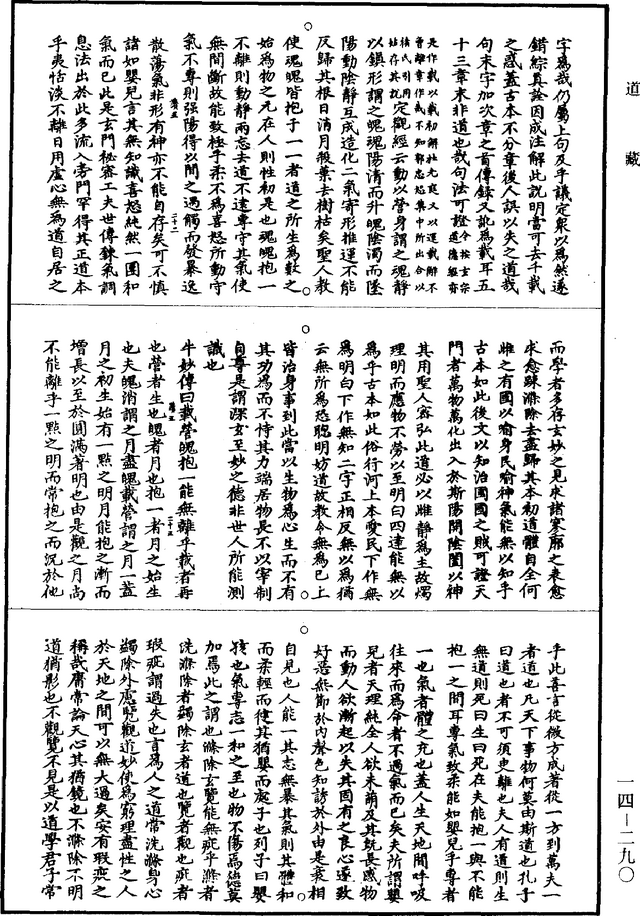 字爲哉仍屬上句及乎議定衆以爲然遂
錯綜真詮因成注解此說明當可去千載
之惑蓋古本不分章後人誤以失之道哉
句末字加次章之首傳録又訛爲載耳五
十三章末非道也哉句法可證
定觀經云動以營身謂之魂靜
以鎮形謂之魄魂陽清而升魄陰濁而墜
陽動陰靜互成造化二氣寄形推運不能
反歸其根日消月殺葉去樹枯矣聖人教
使魂魄皆抱于一一者道之所生爲數之
始爲物之元在人則性初是也魂魄抱一
不離則動靜兩忘去道不遠專守其氣使
無間斷故能致極乎柔不爲喜怒所動守
氣不專則强陽得以間之遇觸而發暴逸
散蕩氣非形有神亦不能自存矣可不慎
諸如嬰兒言其無知識喜怒純然一團和
氣而已此是玄門秘密工夫世傳鍊氣調
息法出於此多流入旁門罕得其正道本
乎夷恬淡不離日用虛心無爲道自居之
而學者多存玄妙之見求諸寥廓之表愈
求愈踈滌除去盡歸其本初道體自全何
雌之有國以喻身民喻神氣能無以知乎
古本如此後文以知治國國之賊可證天
門者萬物萬化出入於斯陽開陰闔以神
其用聖人密弘此道必以雌靜爲主故燭
理明而應物不勞以至明白四達能無以
爲乎古本如此俗行河上本愛民下作無
爲明白下作無知二字正相反無以爲猶
云無所爲恐聰明妨道故教令無爲已上
皆治身事到此當以生物爲心生而不有
其功爲而不恃其力端居物長不以宰制
自尊是謂深玄至妙之德非世人所能測
識也
牛妙傳曰載營魄抱一能無離乎載者再
也營者生也魄者月也抱一者月之始生
也夫魄消謂之月盡魄載營謂之月一蓋
月之初生始有一點之明月能抱之漸而
增長以至於圓滿著明也由是觀之月尚
不能離乎一點之明而常抱之而況於他
乎此喜言從微方成著從一方到萬夫一
者道也凡天下事物何莫由斯道也孔子
曰道也者不可須臾離也夫人有道則生
無道則死曰生曰死在夫能抱一與不能
抱一之間耳專氣致柔能如嬰兒乎專者
一也氣者體之充也蓋人生天地間呼吸
往來而爲命者不過氣而已矣夫所謂嬰
兒者天理純全人欲未萌及其既長感物
而動人欲漸起以失其固有之良心遂致
好惡無節於内聲色知誘於外由是衰相
自見也人能一其志無暴其氣則其體和
而柔輕而健其猶嬰而處子也列子曰嬰
孩也氣專志一和之至也物不傷焉德莫
加焉此之謂也滌除玄覽能無疵乎滌者
洗滌除者蠲除玄者道也覽者觀也疵者
瑕疵謂過失也言爲人之道常洗滌身心
蠲除外慮覽觀近妙使爲窮理盡性之人
於天地之間可以無大過矣安有瑕疵之
稱哉膺常論天心其猶鏡也不滌除不明
道猶影也不觀覽不見是以道學君子常
道藏
一四—二九〇